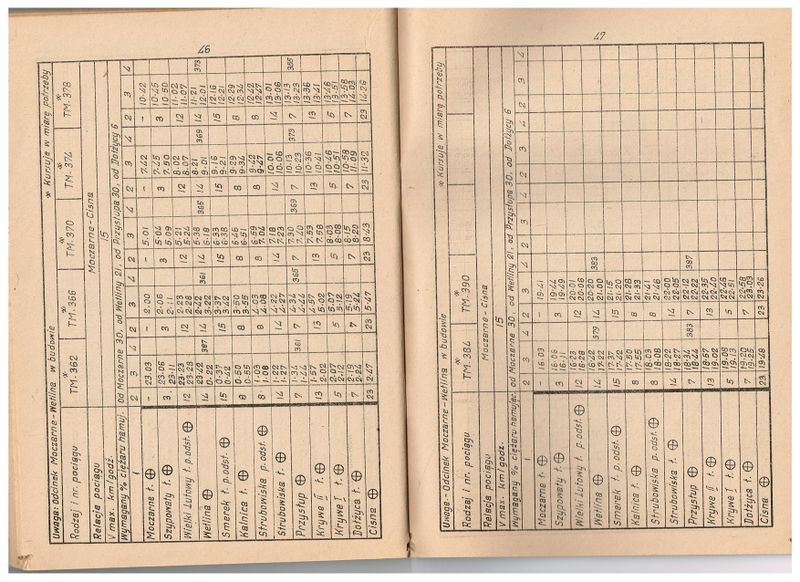 46
Uwaga: odcinek Moczarne-Wetlina w budowie * Kursuje w miarę potrzeby
Rodzaj i nr. pociągu TM.362 * TM.366 TM.370 * TM.374 * TM.378
Relacja pociągu Moczarne-Cisna
V max. km/godz. 15
Wymagany % ciężaru hamuj. od Moczarne 30, od Wetliny 21, od Przysłupa 30, od Dołżycy 6
1 2 3 4 2 3 4 2 3 4 2 3 4 2 3 4
Moczarne t. ⊕ – 23.03 – 2.00 – 5.01 – 7.42 – 10.42
Szypowaty t. ⊕ 3 23.06 3 2.06 3 5.04 3 7.45 3 10.45
23.11 2.11 5.09 7.50 10.50
Wielki Lutowy t. ⊕ 12 23.23 12 2.23 12 5.21 12 8.02 12 11.02
23.28 2.28 5.24 8.07 11.07
Wetlina ⊕ 14 23.42 387 14 2.42 361 14 5.38 365 14 8.21 369 14 11.21 373
0.22 3.22 6.18 9.01 12.01
Smerek t. p.odst. ⊕ 15 0.37 15 3.37 15 6.33 15 9.16 15 12.16
0.42 3.42 6.38 9.21 12.21
Kalnica t. ⊕ 8 0.50 8 3.50 8 6.46 8 9.29 8 12.29
0.55 3.55 6.51 9.34 12.34
Strubowiska p. odst. ⊕ 8 1.03 8 4.03 8 6.59 8 9.42 8 12.42
1.08 4.08 7.04 9.47 12.47
Strubowiska t. ⊕ 14 1.22 14 4.22 14 7.18 14 10.01 14 13.01
1.27 4.27 7.23 10.06 13.06
Przysłup ⊕ 7 1.34 361 7 4.34 365 7 7.30 369 7 10.13 373 7 13.13 385
1.44 4.44 7.40 10.23 13.23
Krywe II t. ⊕ 13 1.57 13 4.57 13 7.53 13 10.36 13 13.36
2.02 5.02 7.58 10.41 13.41
Krywe I t. ⊕ 5 2.07 5 5.07 5 8.03 5 10.46 5 13.46
2.12 5.12 8.08 10.51 13.51
Dołżyca t. ⊕ 7 2.19 7 5.19 7 8.15 7 10.58 7 13.58
2.24 5.24 8.20 11.09 14.03
Cisna ⊕ 23 2.47 23 5.47 23 8.43 23 11.32 23 14.26
47
Uwaga - Odcinek Moczarne-Wetlina w budowie * Kursuje w miarę potrzeby
Rodzaj i nr. pociągu * TM.384 * TM.390
Relacja pociągu Moczarne - Cisna
V max. km/godz. 15
Wymagany % ciężaru hamuj. od Moczarne 30, od Wetliny 21, od Przysłupa 30, od Dołżycy 6
1 2 3 4 2 3 4 2 3 4 2 3 4 2 3 4
Moczarne t. ⊕ – 16.03 – 19.41
Szypowaty t. ⊕ 3 16.06 3 19.44
16.11 19.49
Wielki Lutowy t. ⊕ 12 16.23 12 20.01
16.28 20.06
Wetlina ⊕ 14 16.42 379 14 20.20 383
17.22 21.00
Smerek t. p. odst. ⊕ 15 17.37 15 21.15
17.42 21.20
Kalnica t. ⊕ 8 17.50 8 21.28
17.55 21.33
Strubowiska p. odst. ⊕ 8 18.03 8 21.41
18.08 21.46
Strubowiska t. ⊕ 14 18.22 14 22.00
18.27 22.05
Przysłup ⊕ 7 18.34 383 7 22.12 387
18.44 22.22
Krywe II t. ⊕ 13 18.57 13 22.35
19.02 22.40
Krywe I t. ⊕ 5 19.08 5 22.46
19.13 22.51
Dołżyca t. ⊕ 7 19.20 7 22.58
19.25 23.03
Cisna ⊕ 23 19.48 23 23.26